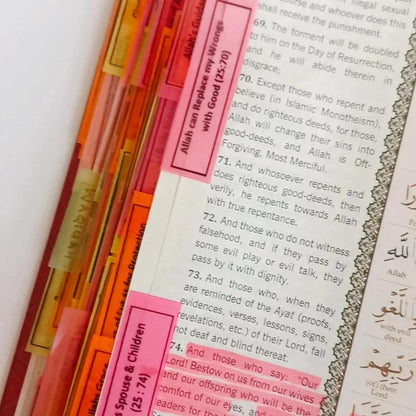 course and whoever does this
shall receive the punishment.
69. The torment will be doubled
to him on the Day of Resurrection,
and he will abide therein in
disgrace;
70. Except those who repent and
believe (in Islamic Monotheism),
and do righteous deeds, for those,
Allah will change their sins into
good-deeds, and Allah is Oft-
Forgiving, Most Merciful.
71. And whosoever repents and
does righteous good-deeds, then
verily, he repents towards Allah
with true repentance.
72. And those who do not witness
falsehood, and if they pass by
some evil play or evil talk, they
pass by it with dignity.
73. And those who, when they
are reminded of the Ayat (proofs,
evidences, verses, lessons, signs,
revelations, etc.) of their Lord, fall
not deaf and blind thereat.
74. And those who say: "Our
Lord! Bestow on us from our wives
and our offspring who will be the
comfort of our eyes, and
leaders for the
Allah can Replace my Wrongs
with Good (25:70)
Spouse & Children
(25 : 74)
Allah's
الله
اللغو
with evil
deed
ربهم
(of) their
Lord